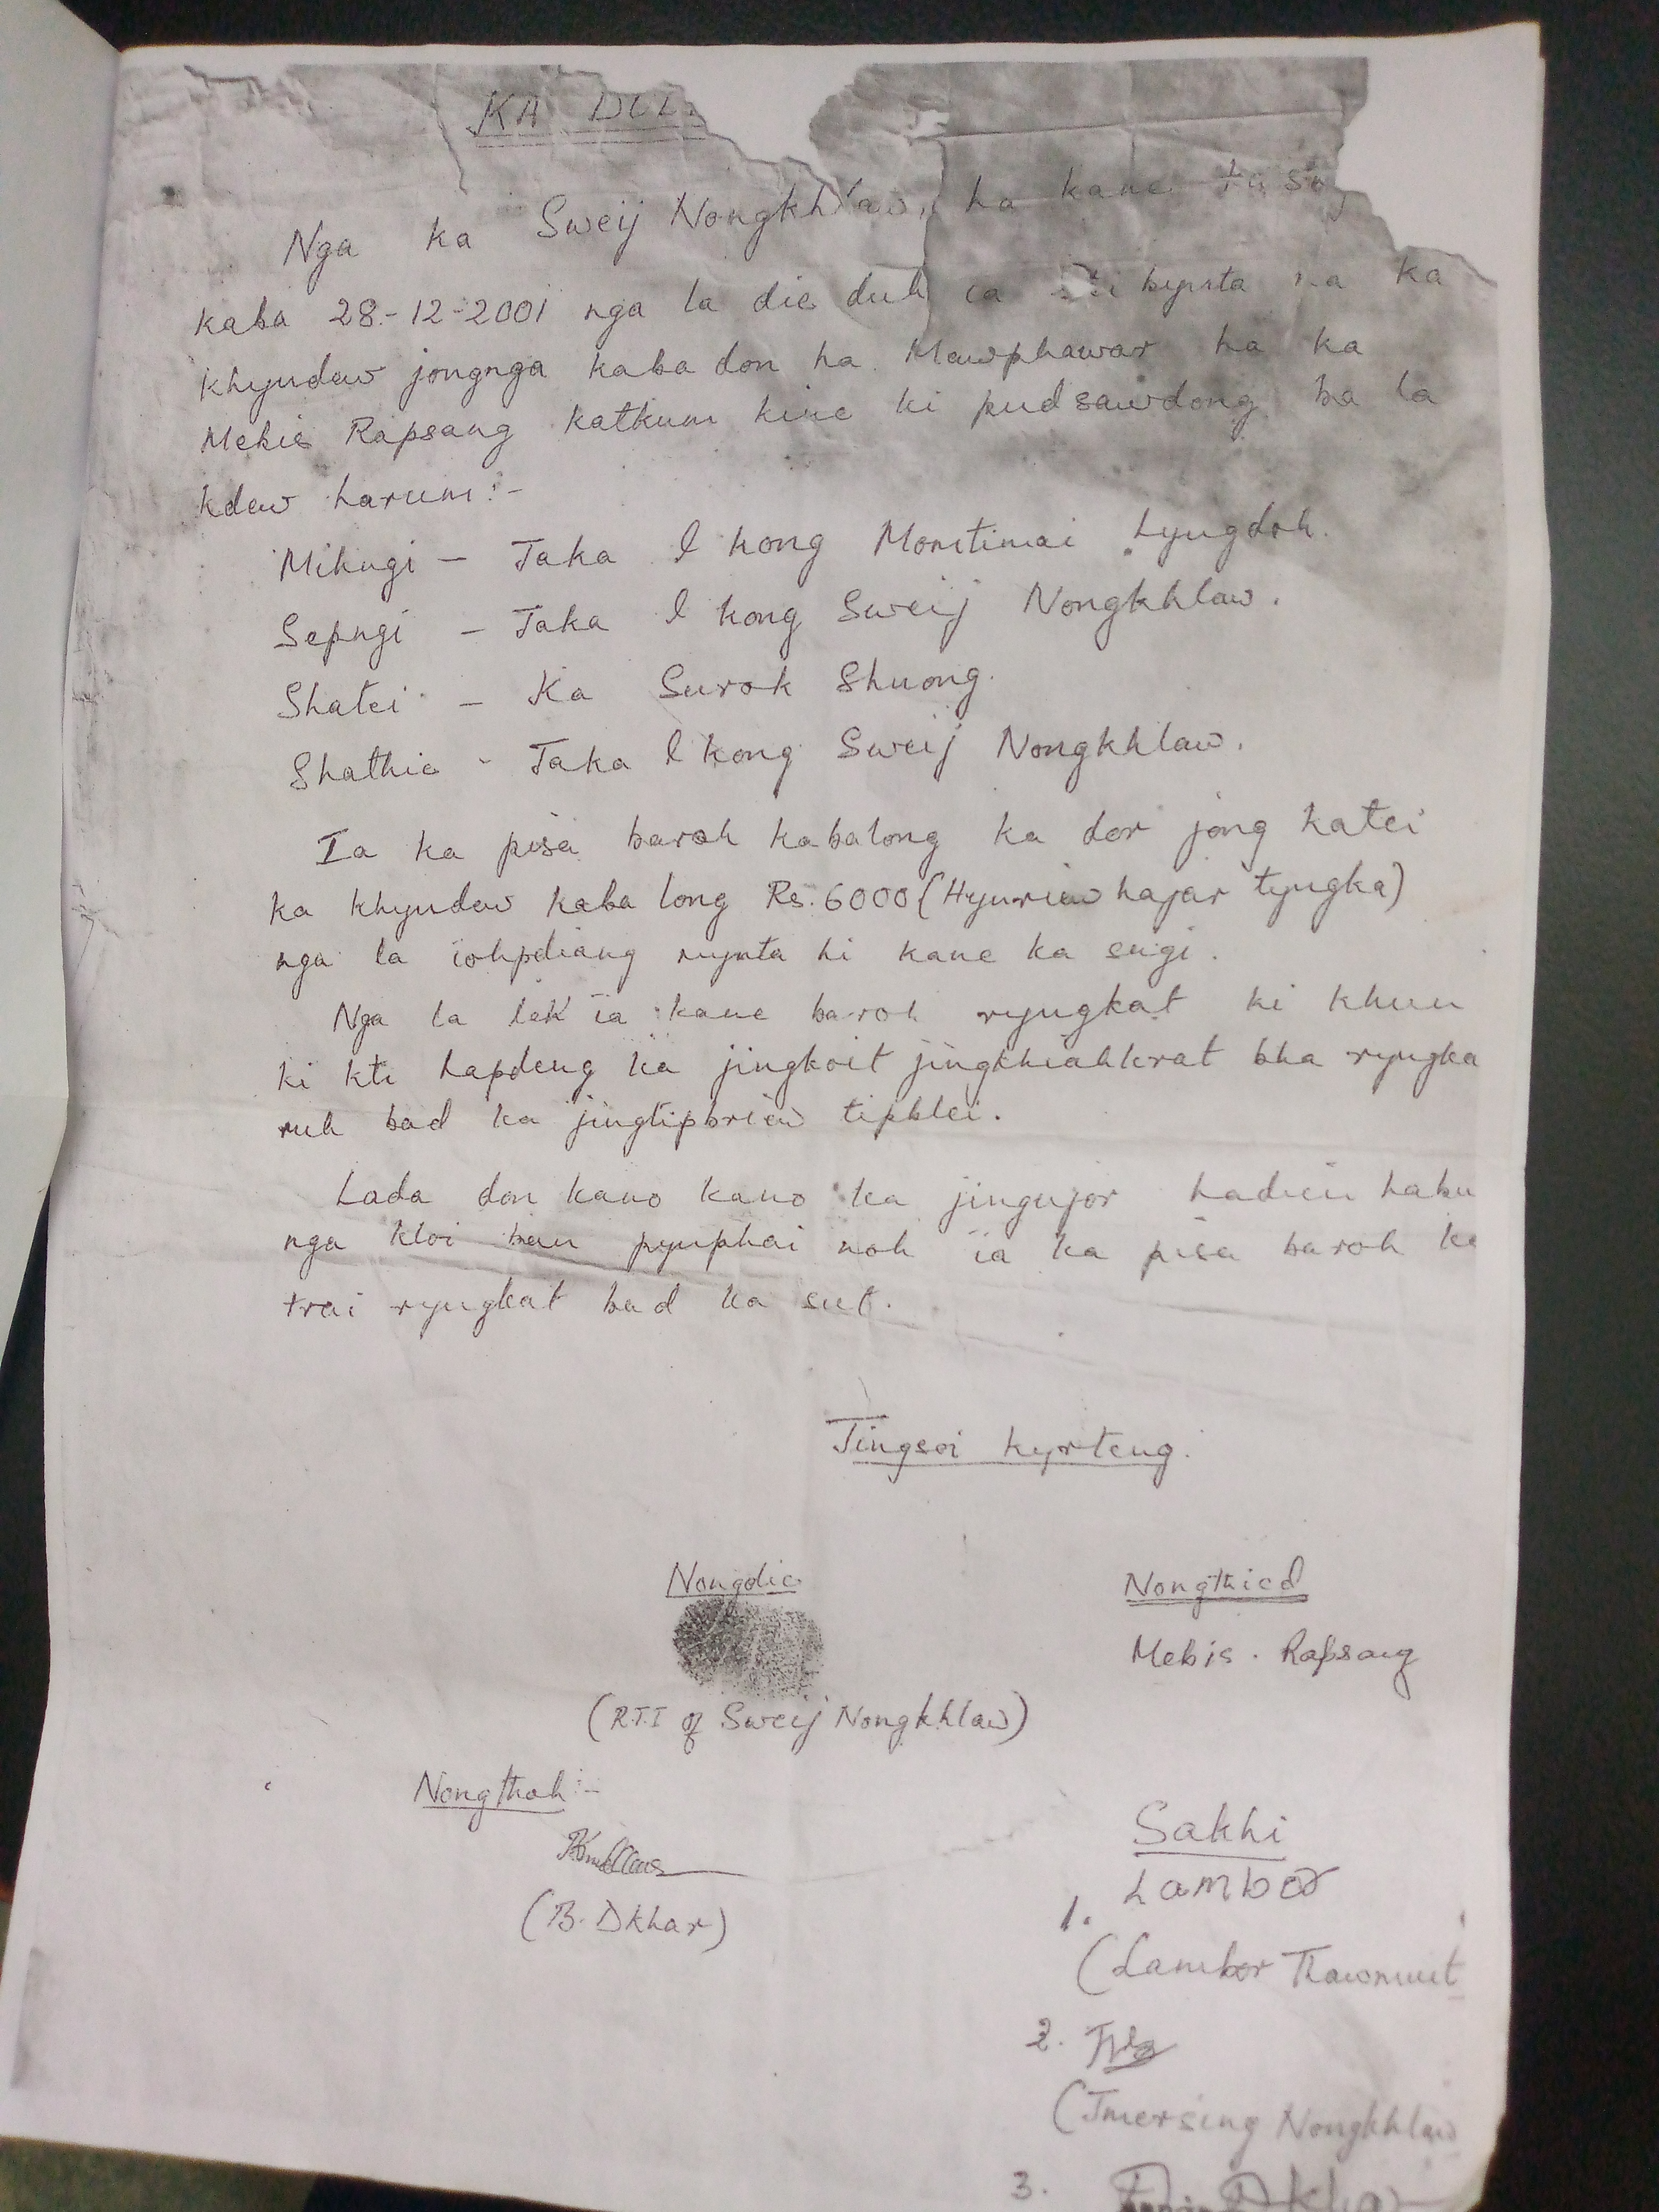 KA DUL
Nga ka Sweij Nongkhlaw, ha kane ka
kaba 28-12-2001 nga la die duh ia bynta na ka
khyndew jongnga kaba don ha Mawphawar ha ka
Mebis Rapsang katkum kine ki pud sawdong ba la
kdew harum:-
Mihngi - Jaka I kong Morntimai Lyngdoh.
Sepngi - Jaka I kong Sweij Nongkhlaw.
Shatei - Ka Surok Shnong.
Shathie - Jaka I kong Sweij Nongkhlaw.
Ia ka pisa baroh kabalong ka dor jong katei
ka khyndew kaba long Rs. 6000 (Hynriew hajar tyngka)
nga la ïohpdiang mynta hi kane ka sngi.
Nga la leh ïa kane baroh ryngkat ki khun
ki kti hapdeng ka jingkoit jingkhiahkrat bha ryngka
ruh bad ka jingtipbriew tipblei.
Lada don kano kano ka jingujor hadien habu
nga kloi ban pynphai noh ïa ka pisa baroh ka
trai ryngkat bad ka sut.
Jingsoi kyrteng.
Nongdie
Nongthied
Mebis. Rapsang
(R.T.I of Sweij Nongkhlaw)
Nongthoh:-
(B. Dkhar)
Sakhi
1. Lambor
(Lambor Thawmuit
2.
(Jmersing Nongkhlaw
3.